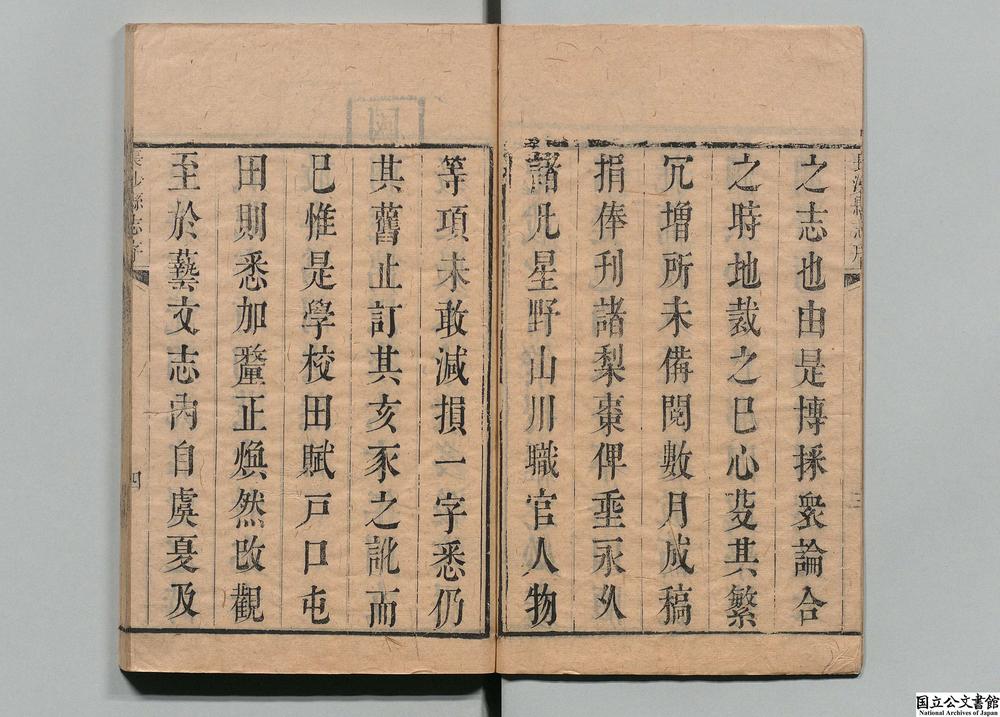 長沙縣志序
之志也由是博採衆論合
之時地裁之已心芟其繁
冗增所未備閱數月成稿
捐俸刊諸梨棗俾垂永久
諸凡星野山川職官人物
等項未敢減損一字悉仍
其舊止訂其亥豕之訛而
已惟是學校田賦戶口屯
田則悉加釐正煥然改觀
至於藝文志內自虞夏及
長沙縣志序
四
国立公文書館
National Archives of Japan